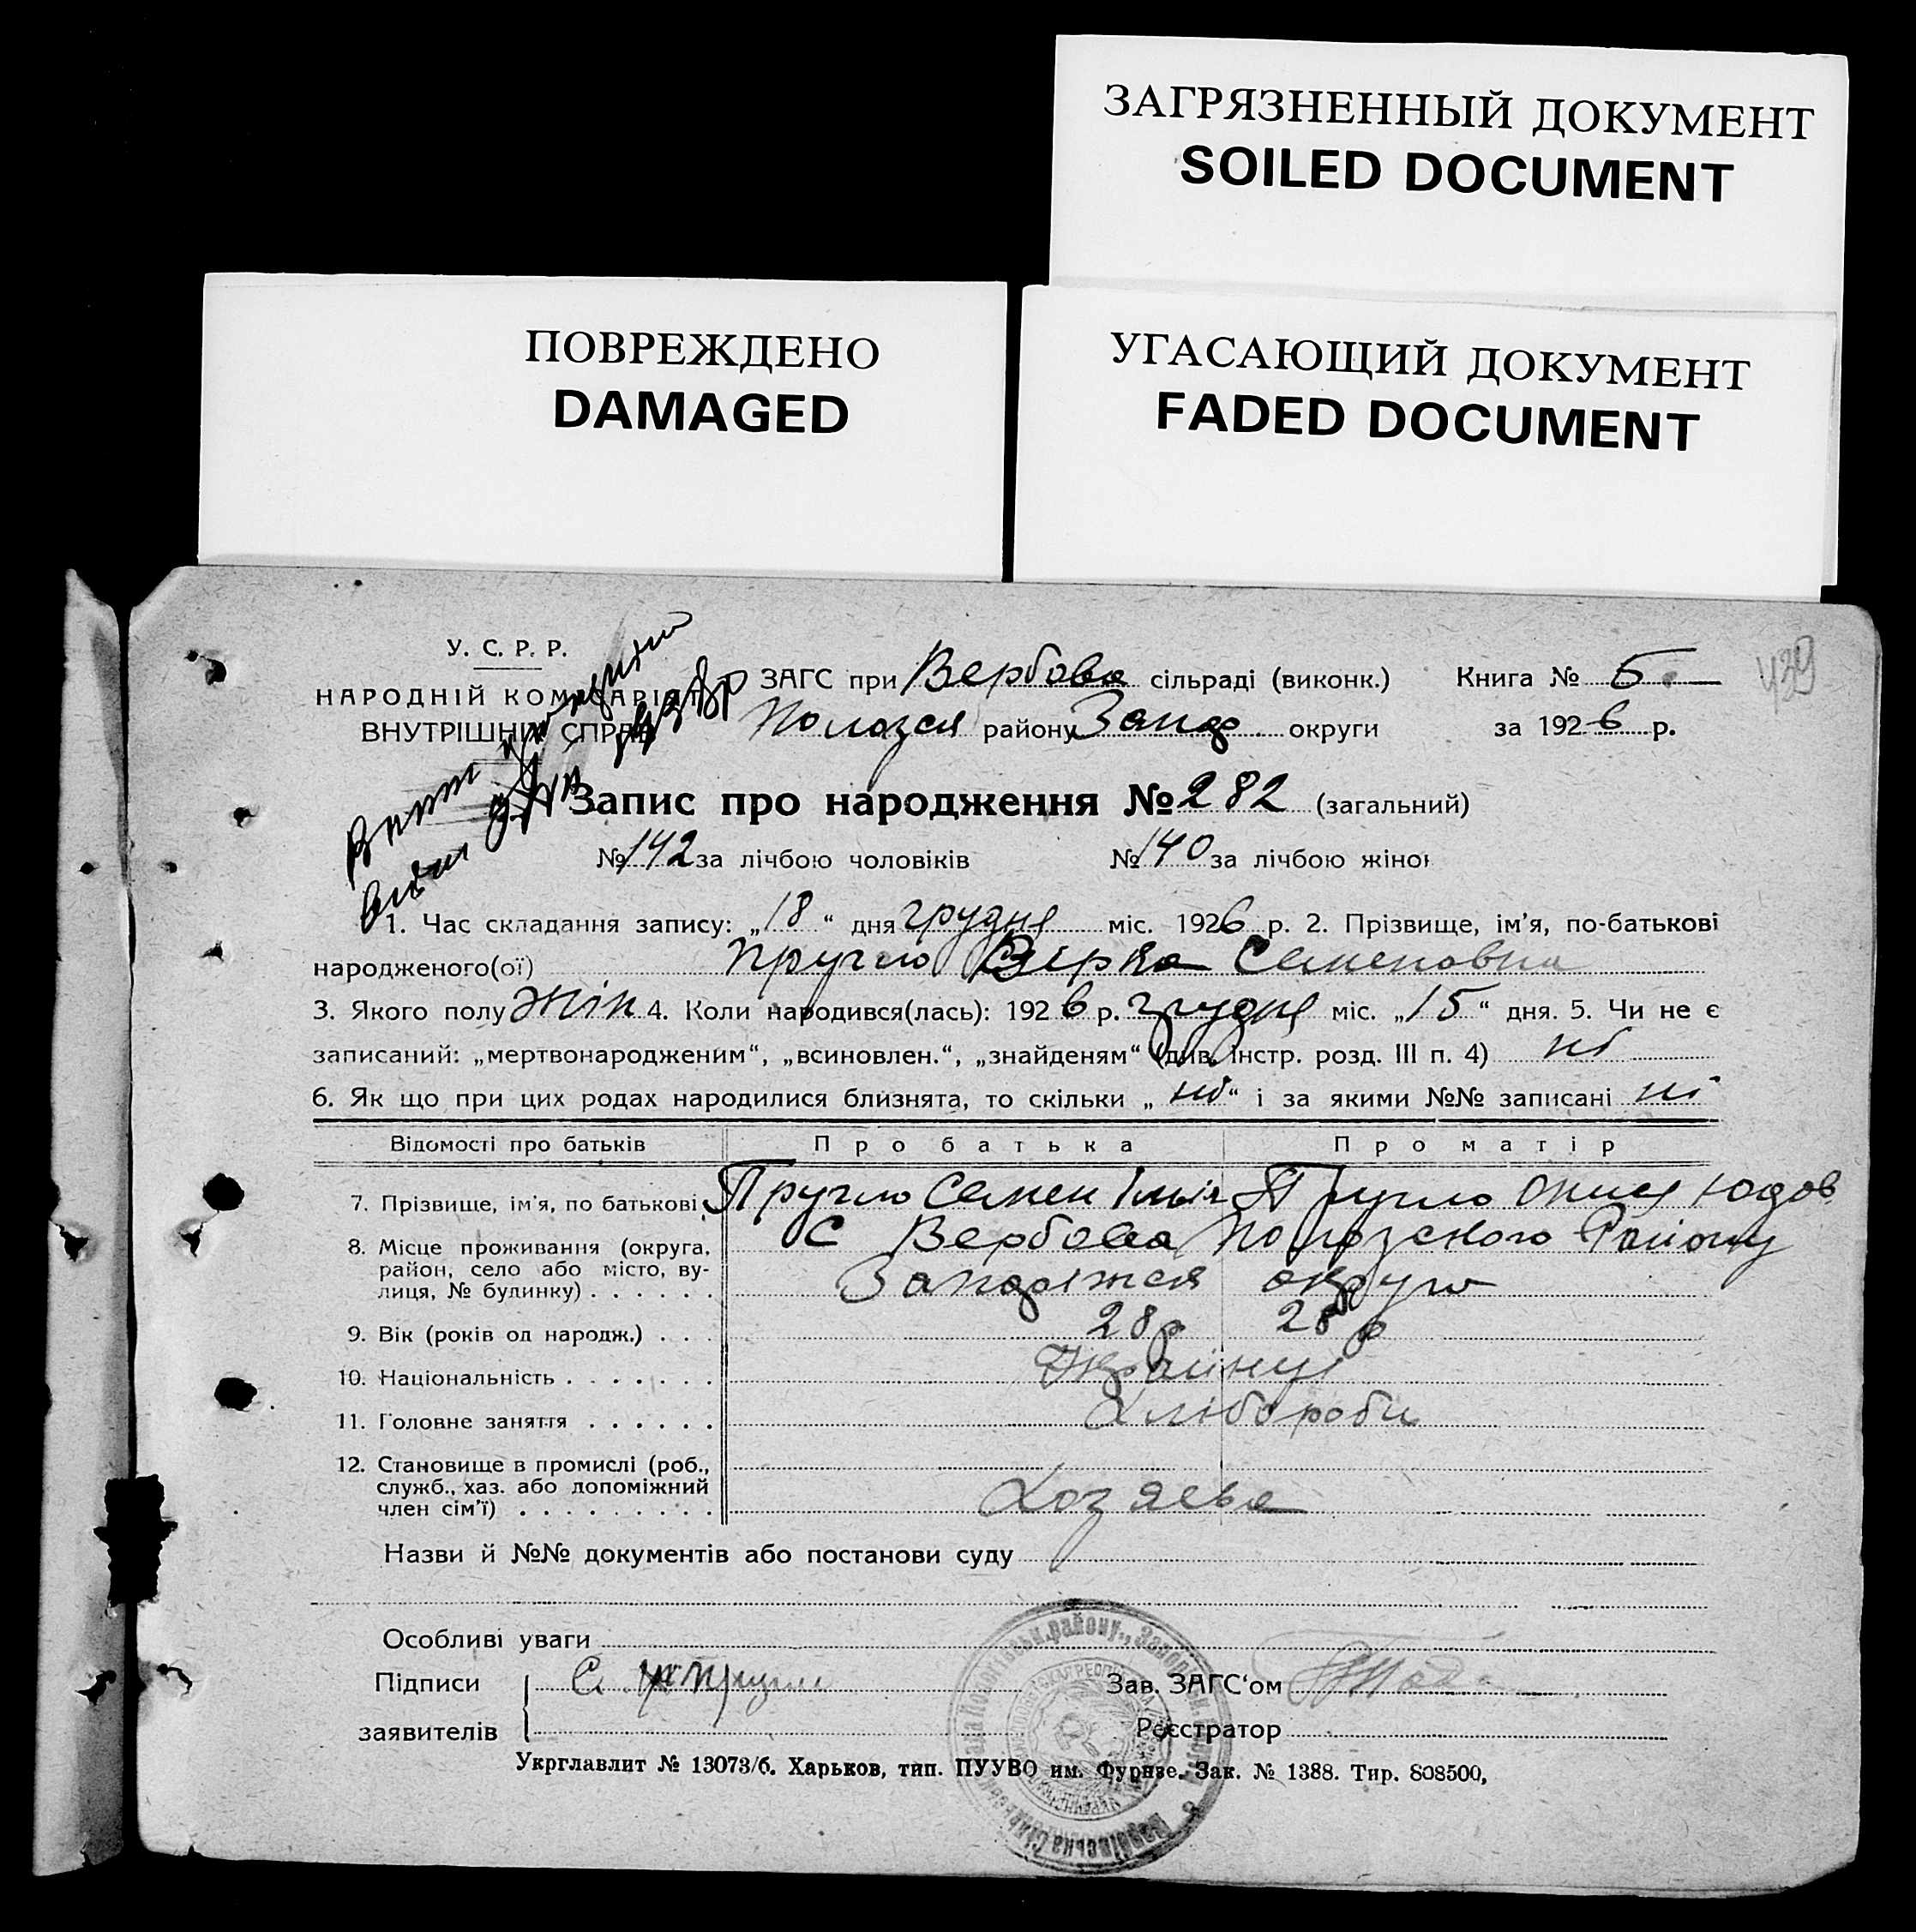 ЗАГРЯЗНЕННЫЙ ДОКУМЕНТ
SOILED DOCUMENT
ПОВРЕЖДЕНО
DAMAGED
УГАСАЮЩИЙ ДОКУМЕНТ
FADED DOCUMENT
439
У. С. Р. Р.
НАРОДНІЙ КОМІСАРІЯТ
ВНУТРІШНІХ СПРАВ
ЗАГС при Вербова сільраді (виконк.)
Пологся району Запор. округи
Книга № 5
за 1926 р.
Запис про народження № 282 (загальний)
№ 142 за лічбою чоловіків № 140 за лічбою жіно
1. Час складання запису: „18“ дня грудня міс. 1926 р. 2. Прізвище, ім'я, по-батькові
народженого(ої) Пругло Вірка Семеновна
3. Якого полу жін 4. Коли народився(лась): 1926 р. грудня міс. „15“ дня. 5. Чи не є
записаний: „мертвонародженим“, „всиновлен.“, „знайденям“ (див. Інстр. розд. III п. 4) ні
6. Як що при цих родах народилися близнята, то скільки „ні“ і за якими №№ записані ні
Відомості про батьків Про батька Про матір
7. Прізвище, ім'я, по батькові Пругло Семен Ілья Пругло Юдов
8. Місце проживання (округа, район, село або місто, вулиця, № будинку) . . . . . . С Вербова Пологского Району
Запоріжся округи
9. Вік (років од народж.) . . . 28 р 28 р
10. Національність . . . . . . . Україньці
11. Головне заняття . . . . . . Хлібороби
12. Становище в промислі (роб.,
служб., хаз. або допоміжний
член сім'ї) . . . . . . . . . Хозяева
Назви й №№ документів або постанови суду
Особливі уваги
Підписи
заявителів
С. Пругло
Зав. ЗАГС'ом
Реєстратор
Укрглавлит № 13073/б. Харьков, тип. ПУУВО им. Фрунзе. Зак. № 1388. Тир. 808500,